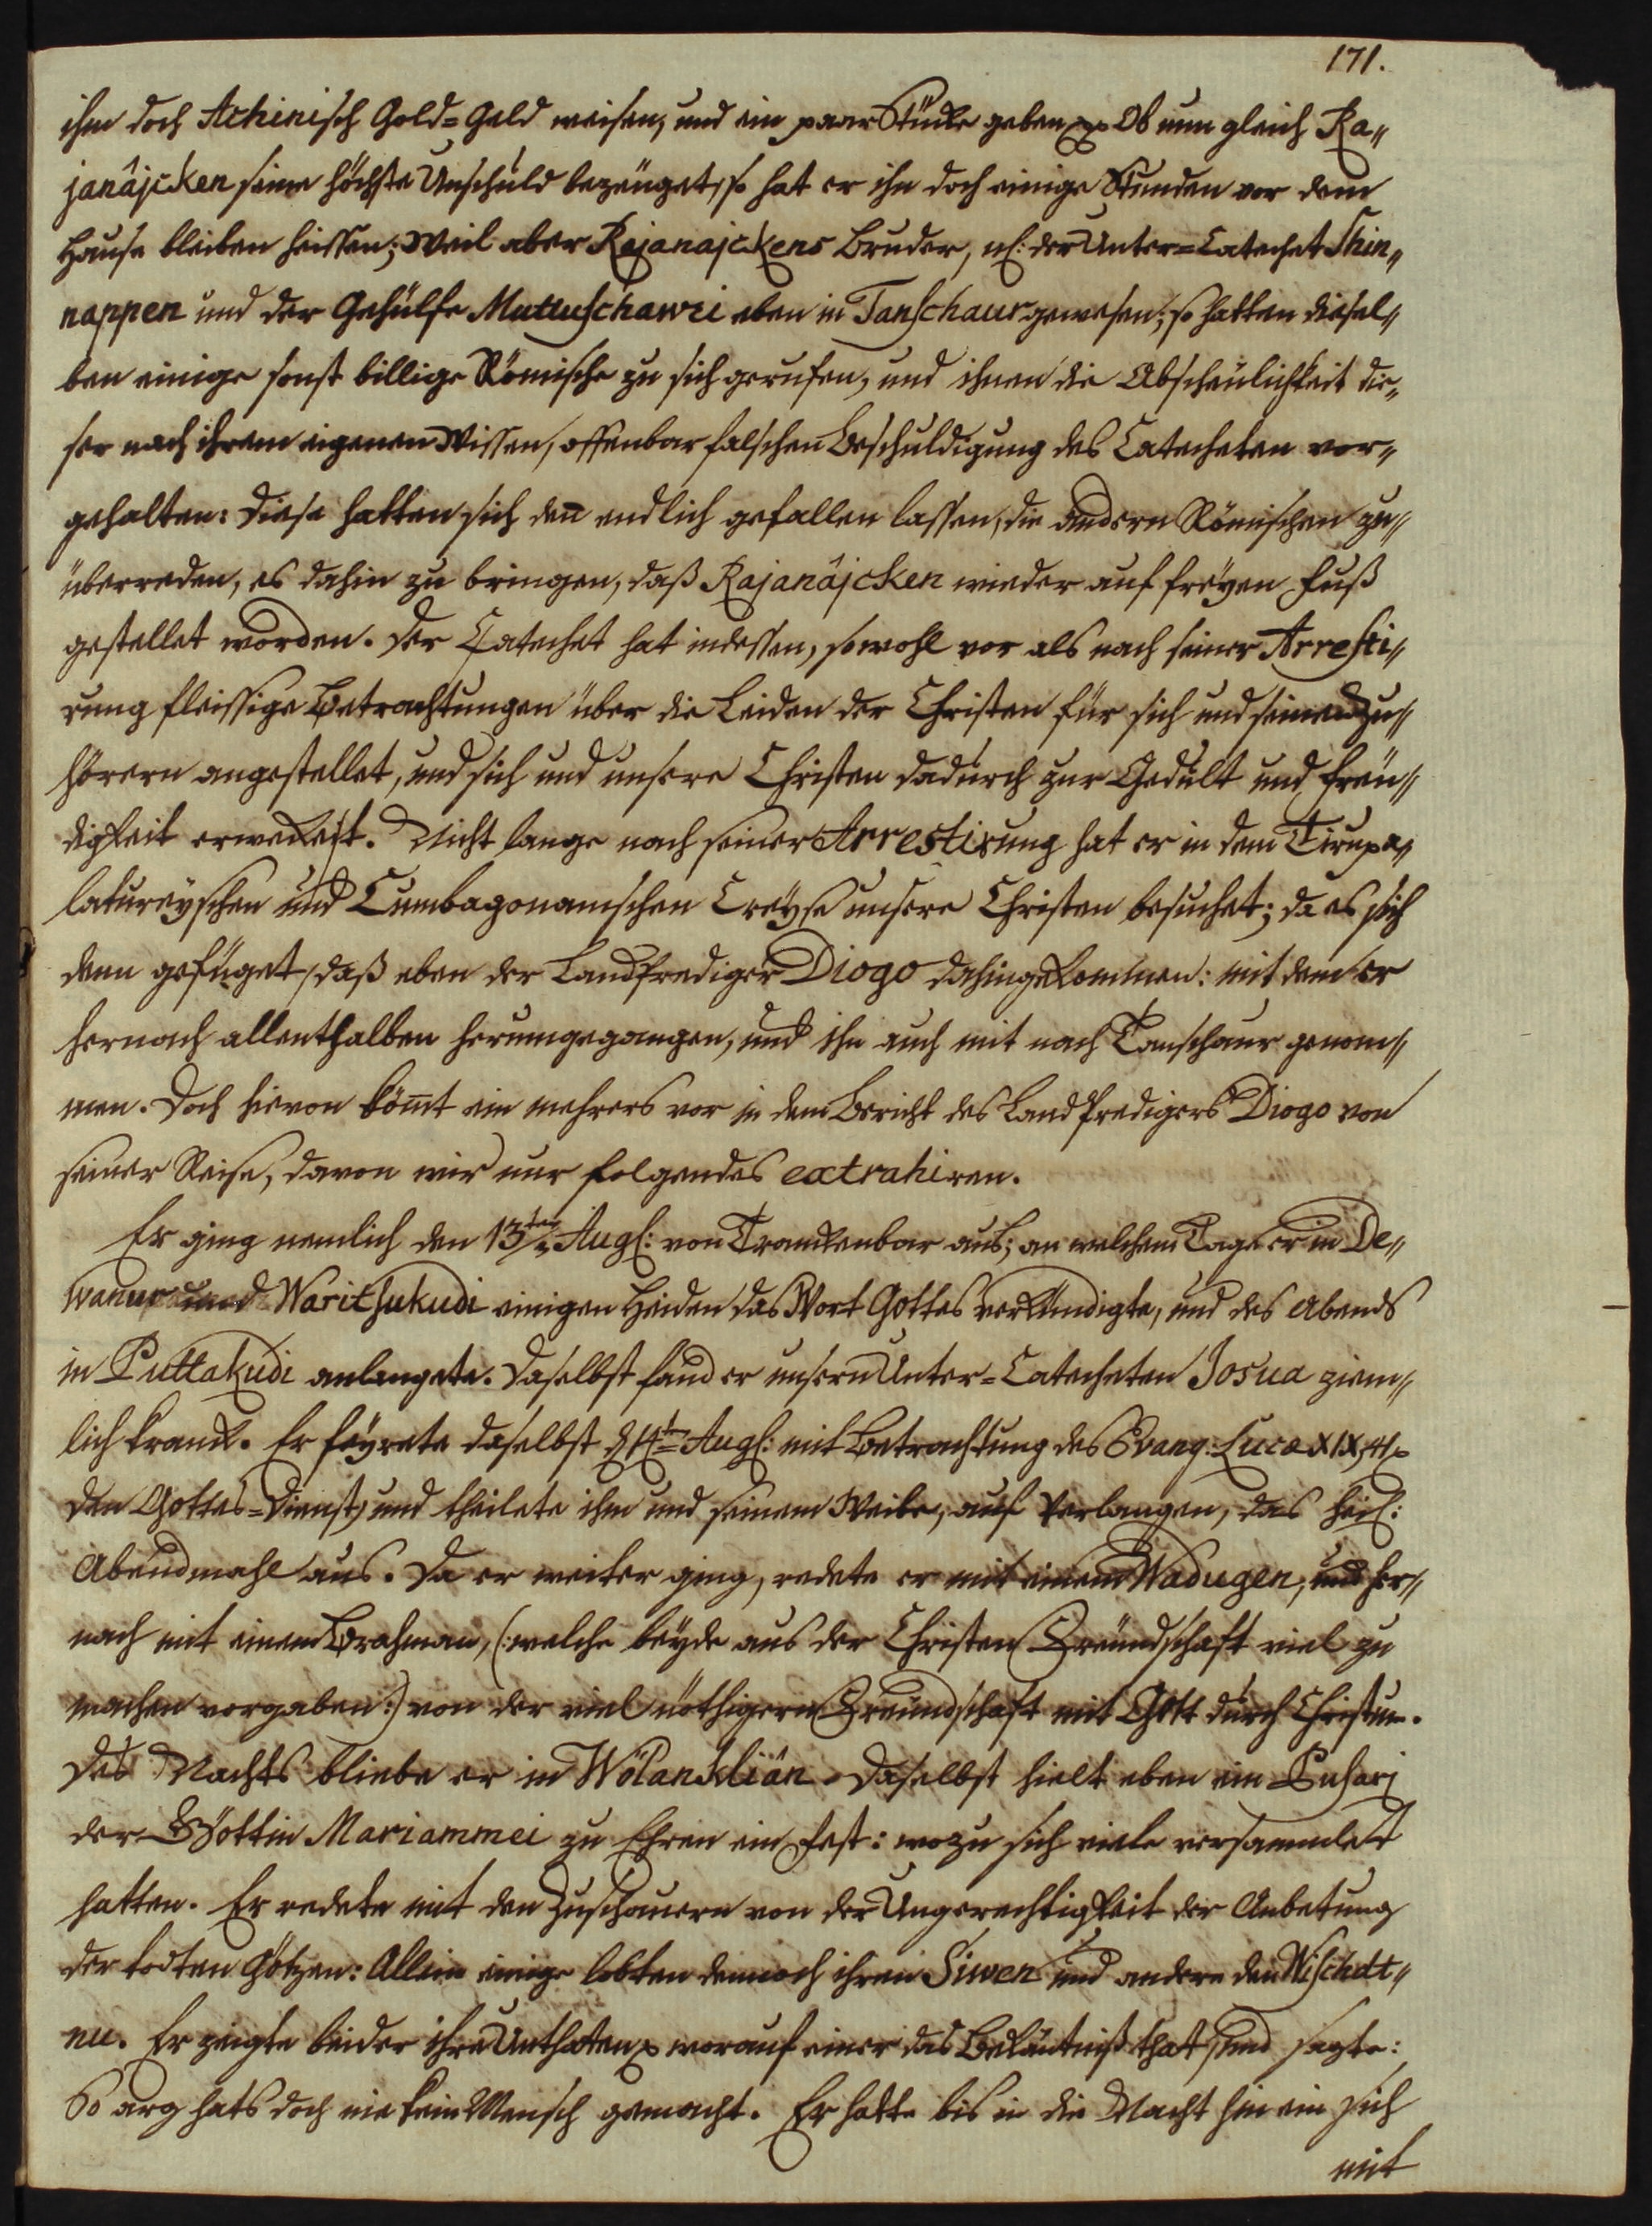 171.
ihm doch Achinisch Gold=Geld weisen, und ein paar Stücke geben p Ob nun gleich Ra„
janâjcken seine höchste Unschuld bezeuget, so hat er ihn doch einige Stunden vor dem
Hause bleiben heissen; Weil aber Rajanajckens Bruder, nl: der Unter=Catechet Shin„
nappen und der Gehülfe Muttuschawri eben in Tanschaur gewesen; so hatten diesel„
ben einige sonst billige Römische zu sich gerufen, und ihnen die Abscheulichkeit die„
ser nach ihrem eigenen Wissen, offenbar falschen Beschuldigung des Catecheten vor„
gehalten: Diese hatten sich den̄ endlich gefallen lassen, die andern Römischen zu„
überreden, es dahin zu bringen, daß Rajanâjcken wieder auf freyen Fuß
gestellet worden. Der Catechet hat indessen, sowohl vor als nach seiner Arresti„
rung fleissige Betrachtungen über die Leiden der Christen für sich und seinen Zu„
hörern angestellet, und sich und unsere Christen dadurch zur Gedult und Freu„
digkeit erwecket. Nicht lange nach seiner Arrestirung hat er in dem Tirupa„
latureyschen und Cumbagonamschen Creyse unsere Christen besuchet; da es sich
denn gefüget, daß eben der Landprediger Diogo dahingekommen: mit dem er
hernach allenthalben herumgegangen, und ihn auch mit nach Tanschaur genom„
men. Doch hievon köm̄t ein mehrers vor in dem Bericht des Land Predigers Diogo von
seiner Reise, davon wir nur folgendes extrahiren.
Er ging nemlich den 13ten Aug: von Trankenbar aus; an welchem Tage er in De„
wanur und Waritsukudi einigen Heiden das Wort Gottes verkündigte, und des Abends
in Puttakudi anlangete. Daselbst fand er unsern Unter=Catecheten Josua ziem„
lich kranck. Er feyrete daselbst d 14ten Aug: mit Betrachtung des Evang: Lucæ XIX, 41 p
den Gottes=Dienst, und theilete ihm und seinem Weibe, auf Verlangen, das heil:
Abendmahl aus. Da er weiter ging, redete er mit einem Wadugen, und her„
nach mit einem Brahman, (: welche beyde aus der Christen Freundschaft viel zu
machen vorgaben :) von der viel nöthigern Freundschaft mit Gott durch Christum.
Des Nachts bliebe er in Wölankliän. Daselbst hielt eben ein Puhari
der Göttin Mariammei zu Ehren ein Fest: wozu sich viele versammlet
hatten. Er redete mit den Zuschauern von der Ungerechtigkeit der Anbetung
der todten Götzen: Allein einige lobten dennoch ihren Siwen und andere den Wischdt„
nu. Er zeigte beider ihre Unthaten p worauf einer das Bekäntniß that, und sagte:
So arg hats doch nie kein Mensch gemacht. Er hatte bis in die Nacht hin ein sich
mit